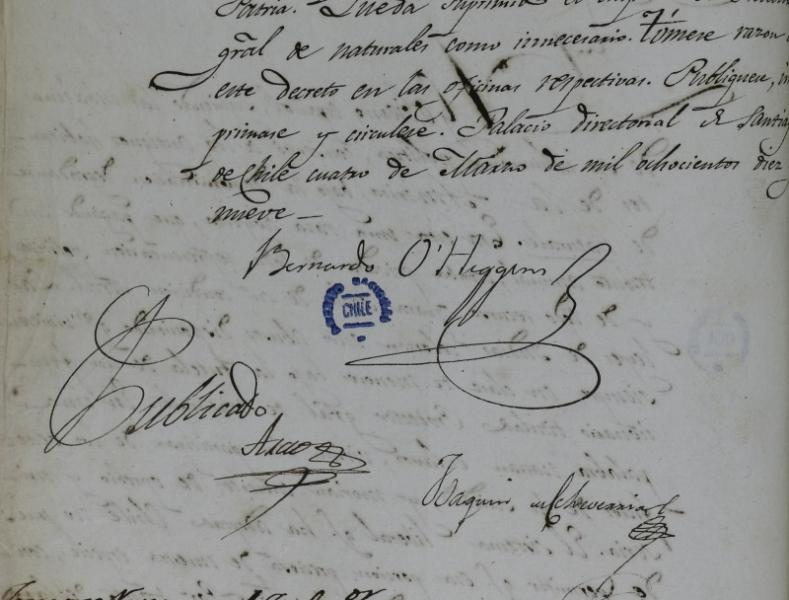 Patria. Queda suprimi
gral de naturales como innecesario. Tómese razon
este decreto en las oficinas respectivas. Publiquese, im
primase y circulese. Palacio directorial de Santia
de Chile cuatro de Marzo de mil ochocientos diez
nueve —
Bernardo O'Higgins
CHILE
Publicado
Joaquin de Echeverria